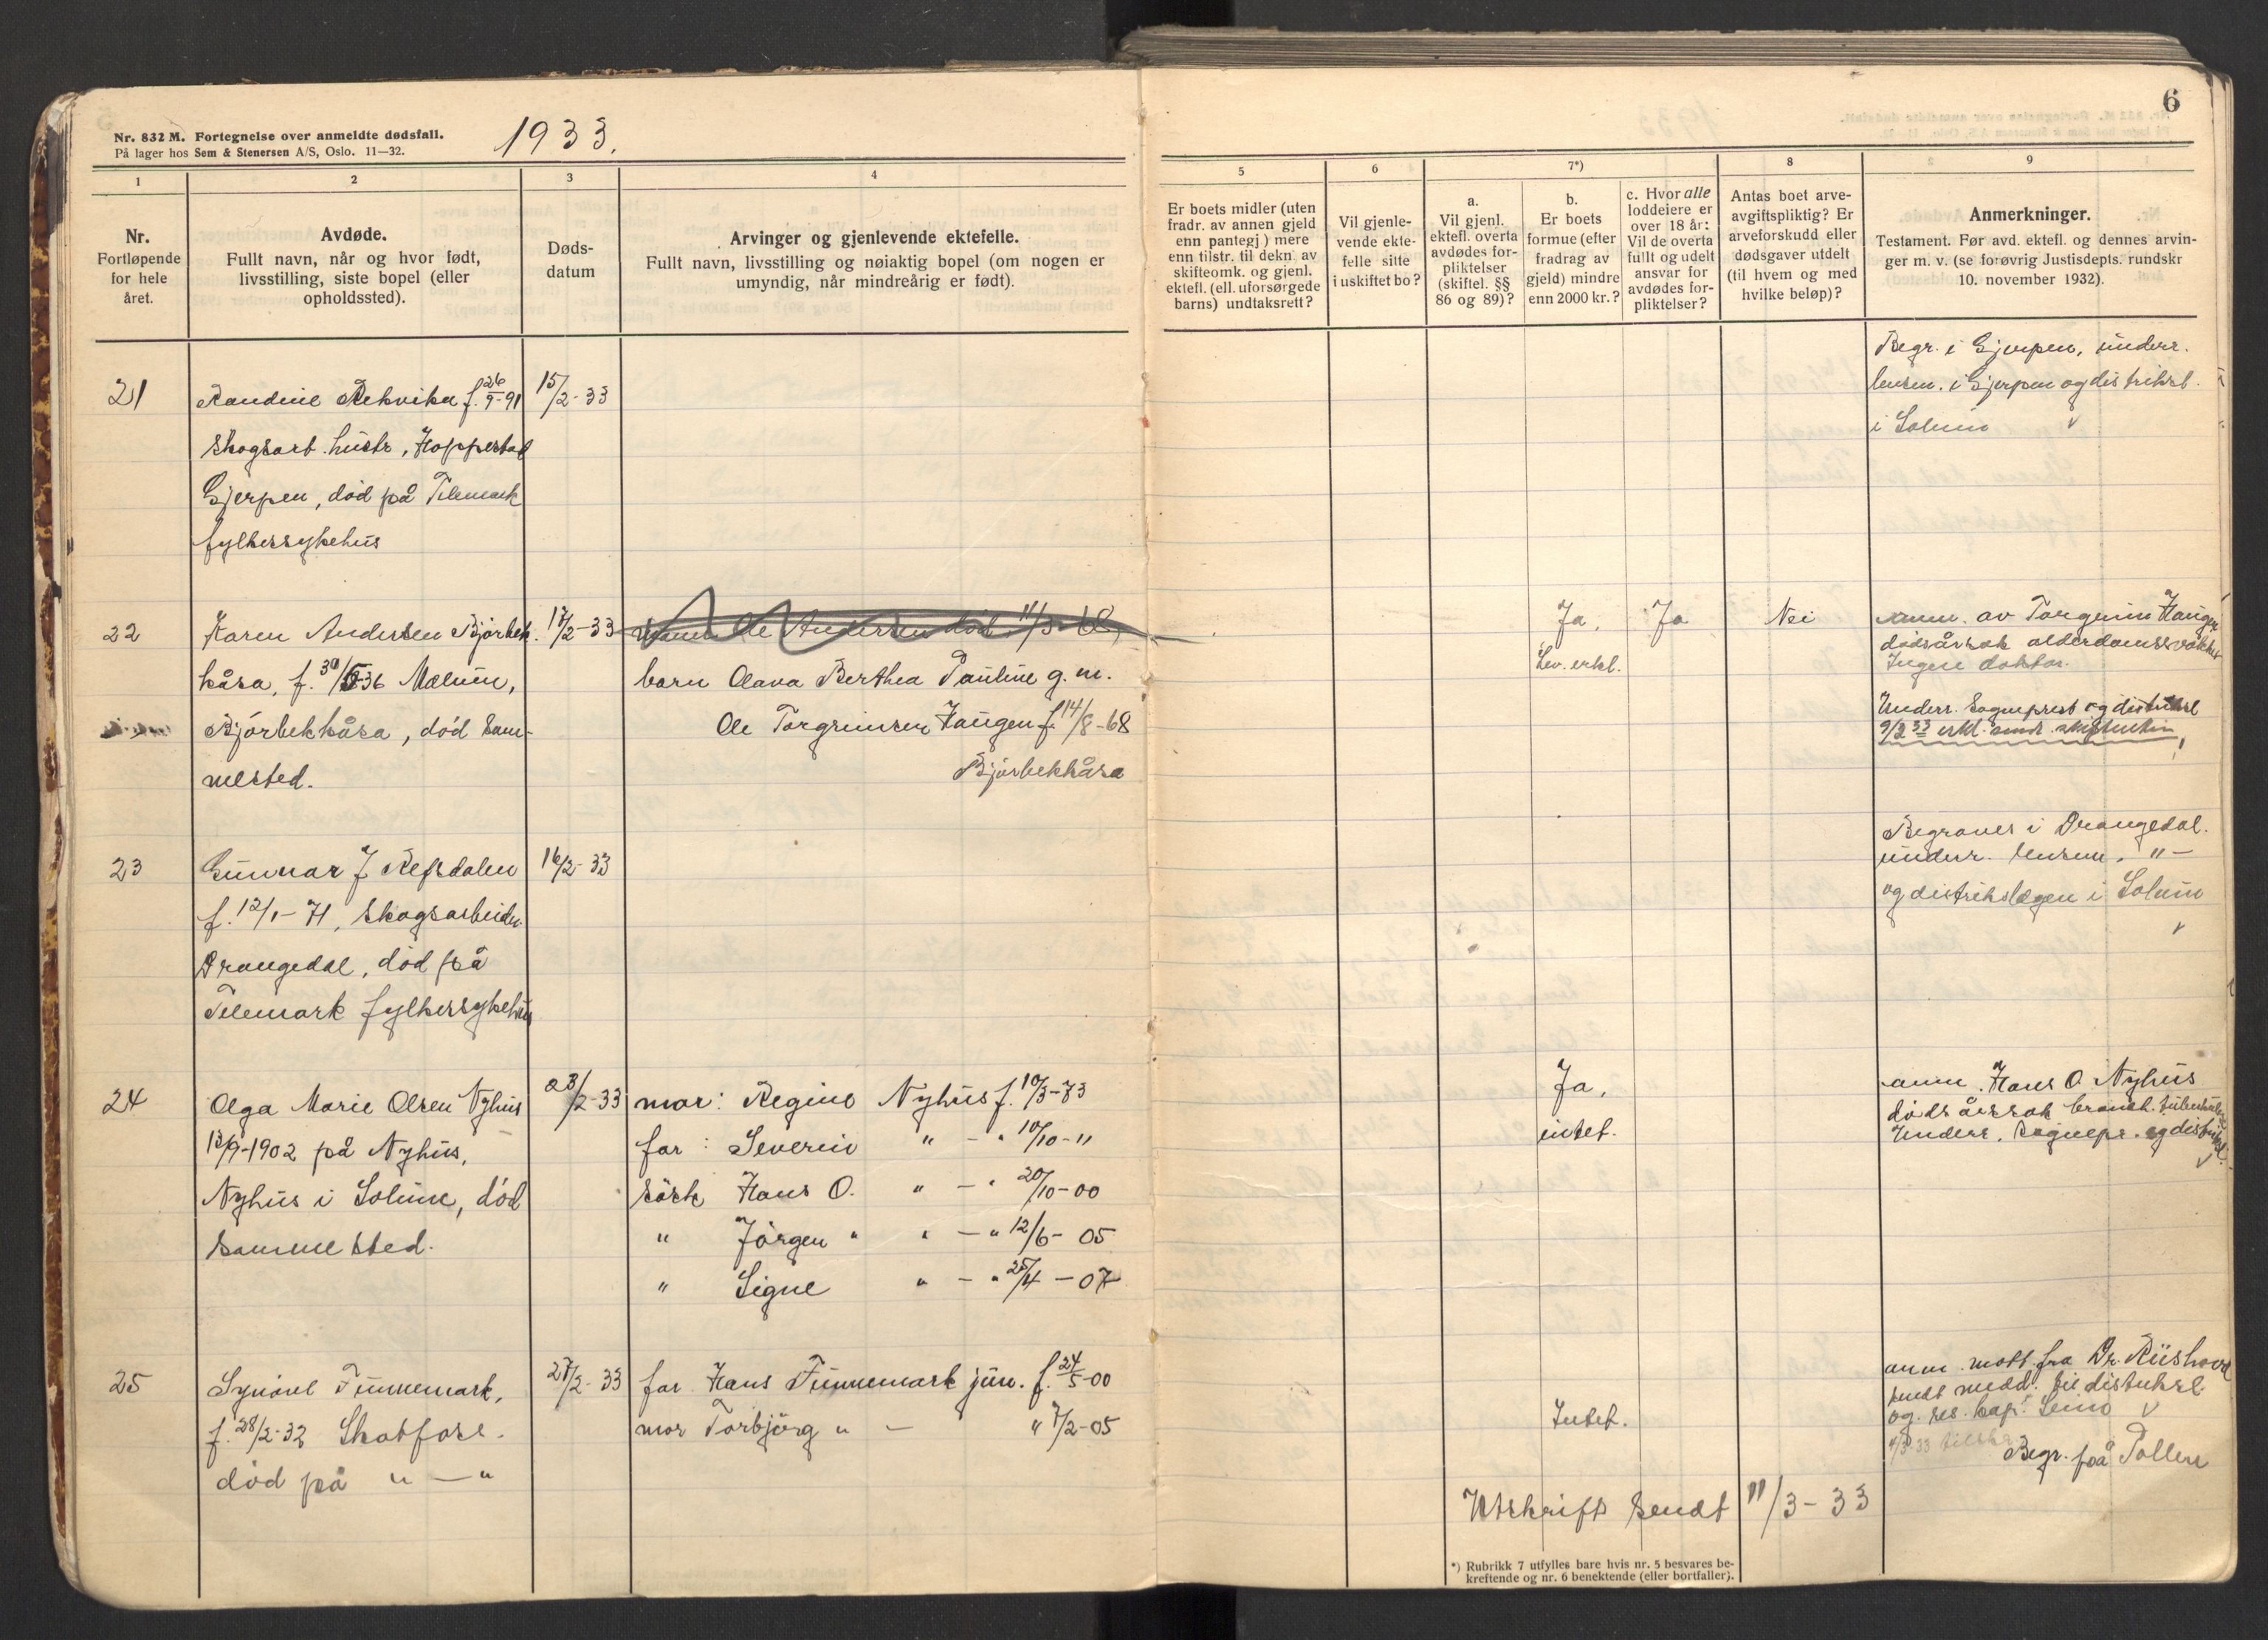 Nr. 832 M. Fortegnelse over anmeldte dødsfall.
På lager hos Sem & Stenersen A/S, Oslo. 11—32.
1933.
6
1
2
3
4
5
6
7*)
8
9
Nr.
Fortløpende
for hele
året.
Avdøde.
Fullt navn, når og hvor født,
livsstilling, siste bopel (eller
opholdssted).
Døds-
datum
Arvinger og gjenlevende ektefelle.
Fullt navn, livsstilling og nøiaktig bopel (om nogen er
umyndig, når mindreårig er født).
Er boets midler (uten
fradr. av annen gjeld
enn pantegj) mere
enn tilstr. til dekn. av
skifteomk. og gjenl.
ektefl. (ell. uforsørgede
barns) undtaksrett?
Vil gjenle-
vende ekte-
felle sitte
i uskiftet bo?
a.
Vil gjenl.
ektefl. overta
avdødes for-
pliktelser
(skiftel. §§
86 og 89)?
b.
Er boets
formue (efter
fradrag av
gjeld) mindre
enn 2000 kr.?
c. Hvor alle
loddeiere er
over 18 år:
Vil de overta
fullt og udelt
ansvar for
avdødes for-
pliktelser?
Antas boet arve-
avgiftspliktig? Er
arveforskudd eller
dødsgaver utdelt
(til hvem og med
hvilke beløp)?
Anmerkninger.
Testament. Før avd. ektefl. og dennes arvin-
ger m. v. (se forøvrig Justisdepts. rundskr
10. november 1932).
21
Randine Rekvika f. 26/9-91
skogsarb. hustr, Hoppestad
Gjerpen, død på Telemark
fylkessykehus
15/2-33
Begr. i Gjerpen, underr.
lensm. i Gjerpen og distriktsl.
i Solum
22
Karen Andersen Bjørbek
kåsa, f. 30/5-36 Mælum,
Bjørbekkåsa, død sam-
mested.
17/2-33
Ole Andersen død 11/3-68
barn Olava Berthea Pauline g. m.
Ole Torgrimsen Haugen f. 14/8-68
Bjørbekkåsa
Ja.
Lev. erkl.
Ja
Nei
anm. av Torgrim Haugen
dødsårsak alderdomssvakhet
Ingen doktor.
Underr. Sogneprest og distriktsl
9/3 33 erkl. sendt
23
Gunnar J Refsdalen
f. 12/1-71, skogsarbeider
Drangedal, død på
Telemark fylkessykehus
16/2-33
Begraves i Drangedal.
underr. lensm. " -
og distrikslægen i Solum
24
Olga Marie Olsen Nyhus
13/9-1902 på Nyhus,
Nyhus i Solum, død
sammested.
23/2-33
mor: Regine Nyhus f. 10/3-73
far: Severin " - " 10/10-"
søsk Hans O. " - " 20/10-00
" Jørgen " " - " 12/6-05
" Signe " - " 25/4-07
Ja.
intet.
anm. Hans O. Nyhus
dødsårsak bronch. tuberkulose
Underr. sognepr. og distriktsl.
25
Synøve Finnemark,
f. 28/2-32 Skotfoss.
død på " — "
27/2-33
far Hans Finnemark jun. f. 24/5-00
mor Torbjørg " - " 7/2-05
Intet.
anm. mott. fra Dr. Riishovd
sendt medd. til distriktsl.
og res. kap.
Begr. på Pollen
Utskrift sendt 11/3-33
*) Rubrikk 7 utfylles bare hvis nr. 5 besvares be-
kreftende og nr. 6 benektende (eller bortfaller).